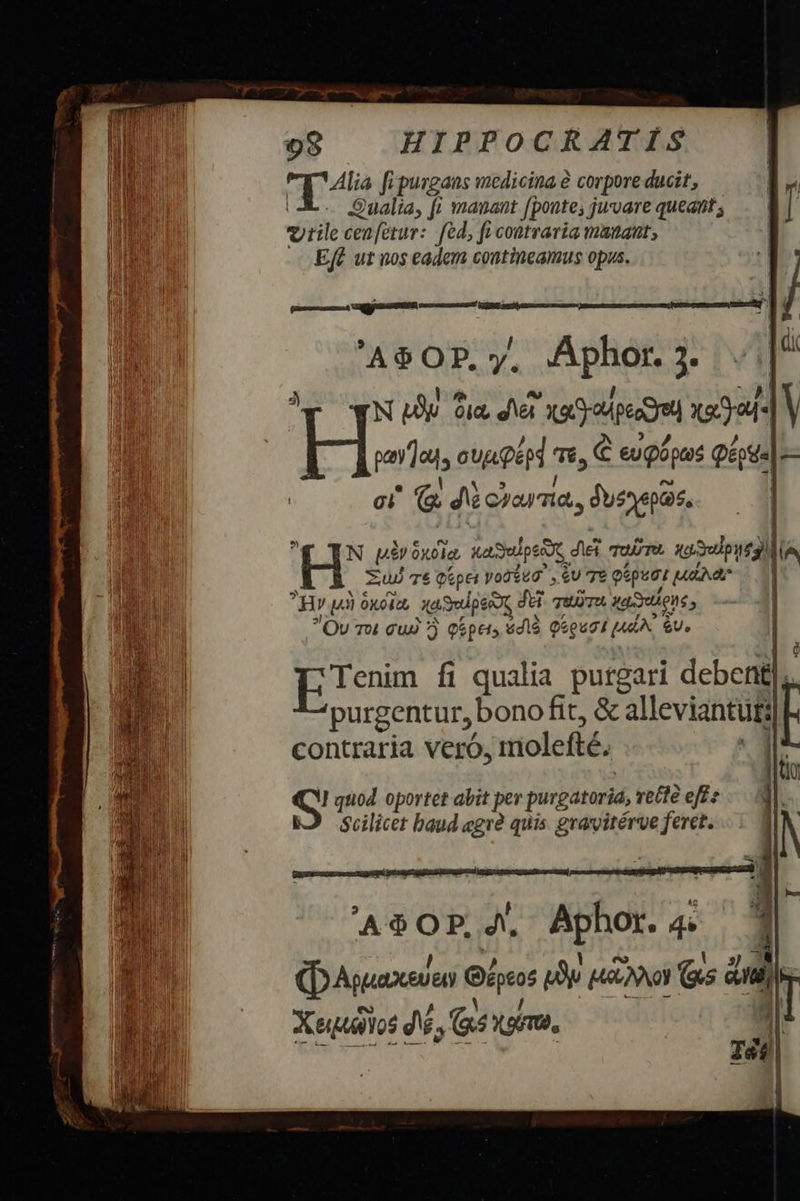 98 HIPPOCRATIS
TAlia si purgans medicina è corpore ducit,
Qualia, si manant sponte, juvare queant,
Vtile censetur: sed, si contraria manant,
Est ut nos eadem contineamus opus.
ἈΦΟΡ. γʹ. Aphor. 3.
ἪΝ μὲν οἷα δεῖ καθαίρεσθαι καθαί-
ρωνται, συμφέρει τε, καὶ εὐφόρως φέρουσι
αἱ δὲ ἐναντία, δυσχερῶς.
ἪΝ μὲν ὁκοῖα καθαίρεσθαι δεῖ ταῦτα καθαίρῃς
Ξυν τε φέρει νοτέεσ', εὖ τε φέρουσι μάλα·
Ἢν μὴ ὁκοῖα καθαίρεσθαι δεῖ ταῦτα καθαίρῃς,
Οὔ τοι συν φέρει, οὐδὲ φέρουσι μάλ' εὖ.
ETenim si qualia purgari debent
purgentur, bono fit, & alleviantur:
contraria verò, molestè.
SI quod oportet abit per purgatoria, rectè est:
Scilicet haud ægrè quis gravitérve feret.
ἈΦΟΡ. δʹ. Aphor. 4.
ΦΑρμακεύειν Θέρεος μὲν μᾶλλον τὰς ἄνω,
Χειμῶνος δὲ, τὰς κάτω.